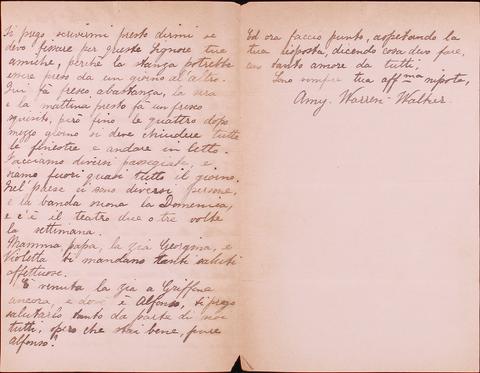 Ti prego scrivermi presto dirmi se
devo fissare per queste Signore tue
amiche, perchè la stanza potrebbe
essere presa da un giorno al'altro.
Qui fà fresco abastanza, la sera
e la mattina presto fà un fresco
squisito, però fino le quattro dopo
mezzo giorno si deve chiudere tutte
le finestre e andare in letto.
Facciamo diversi passegiate, e
siamo fuori quasi tutto il giorno.
Nel paese ci sono diversi persone,
e la banda suona la Domenica,
e c'è il teatro due o tre volte
la settimana.
Mamma, papa, la zia Georgina, e
Violetta ti mandano tanti saluti
affettuose.
È venuta la zia a
ancora, e dove è Alfonso, ti prego
salutarlo tanto da parte di noi
tutti, spero che stai bene, pure
Alfonso.
Ed ora faccio punto, aspetando la
tua risposta, dicendo cosa devo fare,
con tanto amore da tutti,
Sono sempre tua aff.ma nipote,
Amy. Warren-Walker.